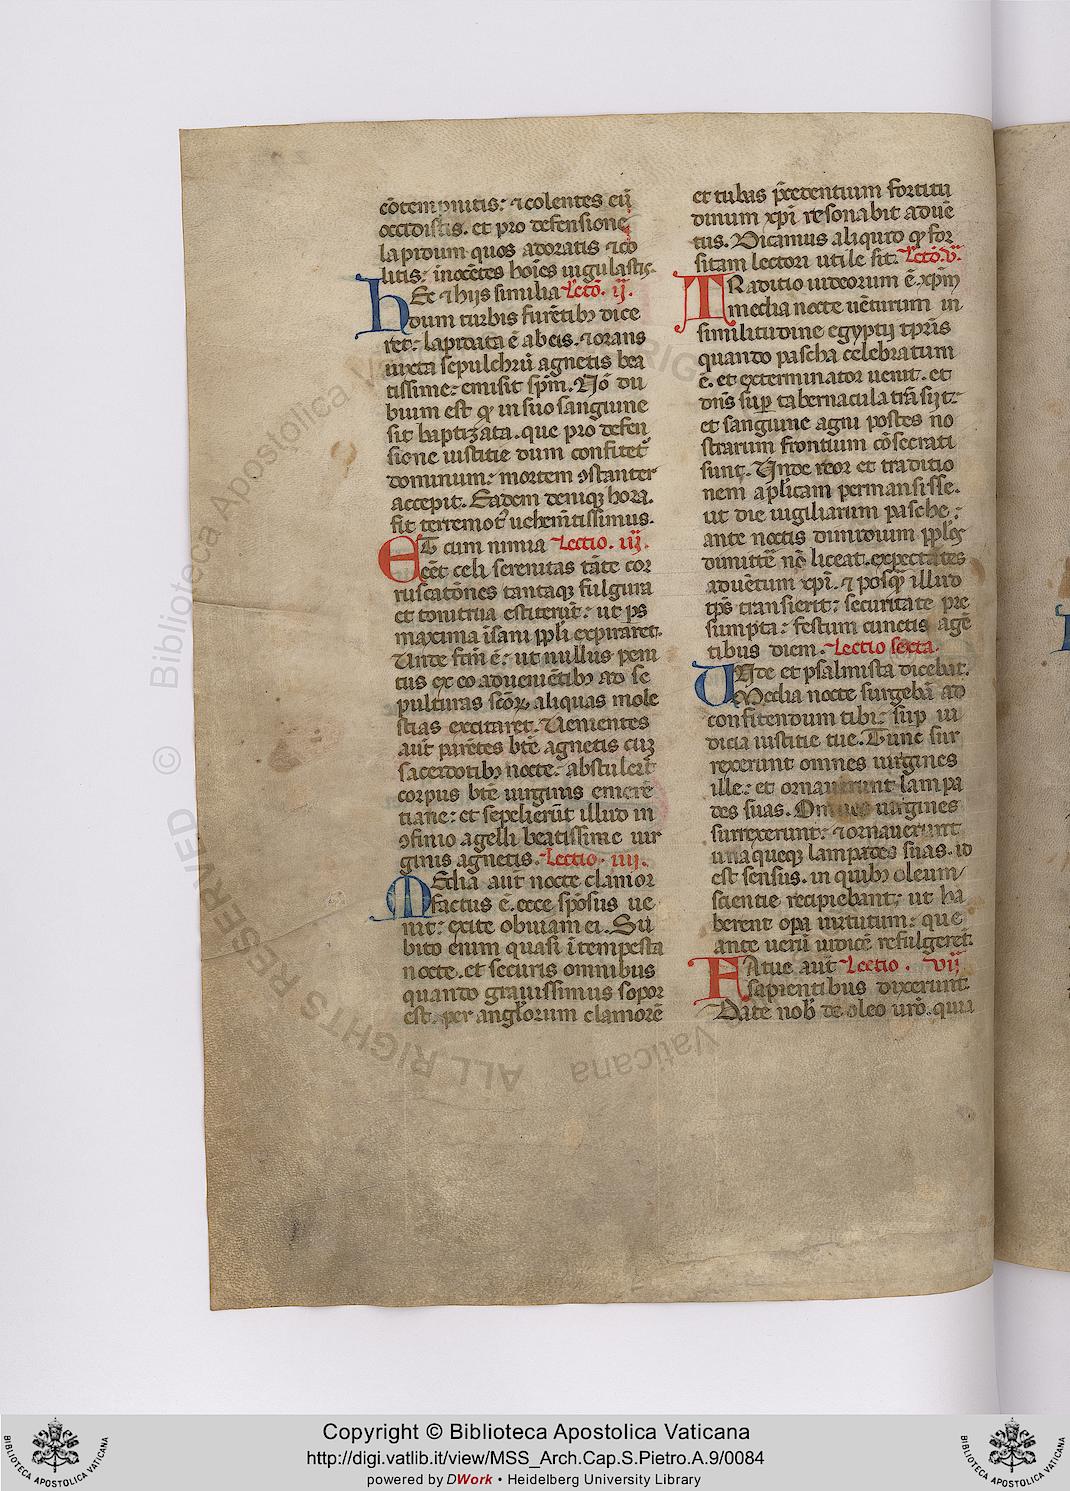 cõtempnitis: ⁊ colentes eũ
occidistis. et pro defensione
lapidum quos adoratis ⁊ co
litis: inocẽtes hoiẽs iugulastis.
Hec ⁊ hijs similia Lectõ. ij.
dum turbis furẽtibꝫ dice
ret: lapidata ẽ ab eis. ⁊ orans
iuxta sepulchrũ agnetis bea
tissime: emisit spm̃. Nõ du
bium est ꝙ in suo sanguine
sit baptizata. que pro defen
sione iustitie dum confitet᷑
dominum: mortem ꝯstanter
accepit. Eadem deniqꝫ hora.
fit terremot᷑ vehem̃tissimus.
Et cum nimia Lectio. iij.
eẽt celi serenitas tãte cor
ruscatõnes tantaqꝫ fulgura
et tonitrua extiterũt: ut ps
maxima ĩsani ppl̃i expiraret.
Unde fcm̃ ẽ: ut nullus peni
tus ex eo adueniẽtibꝫ ad se
pulturas scõꝝ aliquas mole
stias excitaret. Uenientes
aut̃ parẽtes btẽ agnetis cuꝫ
sacerdotibꝫ nocte: abstulerũt
corpus btẽ uirginis emerẽ
tiane: et sepelierũt illud in
ꝯfinio agelli beatissime uir
ginis agnetis. Lectio. iiij.
Media aut̃ nocte clamor
factus ẽ. ecce spõsus ue
nit: exite obuiam ei. Su
bito enim quasi ĩtempesta
nocte. et securis omnibus
quando grauissimus sopor
est. per angl̃orum clamorẽ
et tubas p̃cedentium fortitu
dinum xpi resonabit aduẽ
tus. Dicamus aliquid ꝙ for
sitam lectori utile sit. Lectõ. v.
Traditio iudeorum ẽ. xpm̃
media nocte uẽturum in
similitudine egyptij tp̃ris
quando pascha celebratum
ẽ. et exterminator uenit. et
dñs sup̱ tabernacula trãsijt:
et sanguine agni postes no
strarum frontium cõsecrati
sunt. Unde reor et traditio
nem apl̃icam permansisse.
ut die uigiliarum pasche:
ante noctis dimidium ppl̃os
dimittẽ nõ liceat. expectãtes
aduẽtum xpi. ⁊ posqꝫ illud
tp̃s transierit: securitate pre
sumpta: festum cunctis agẽ
tibus diem. Lectio sexta.
Unde et psalmista dicebat.
Media nocte surgebã ad
confitendum tibi: sup̱ iu
dicia iustitie tue. Tunc sur
rexerunt omnes uirgines
ille: et ornauerunt lampa
des suas. Omnes uirgines
surrexerunt: ⁊ ornauerunt
unaqueqꝫ lampades suas. id
est sensus. in quibꝫ oleum
scientie recipiebant: ut ha
berent opa uirtutum: que
ante uerũ iudicẽ refulgeret.
Fatue aut̃ Lectio. vij
sapientibus dixerunt
Date nob̃ de oleo uro. quia
© Biblioteca Apostolica Vaticana
ALL RIGHTS RESERVED
Copyright © Biblioteca Apostolica Vaticana
http://digi.vatlib.it/view/MSS_Arch.Cap.S.Pietro.A.9/0084
powered by DWork • Heidelberg University Library
BIBLIOTECA APOSTOLICA VATICANA
BIBLIOTECA APOSTOLICA VATICANA